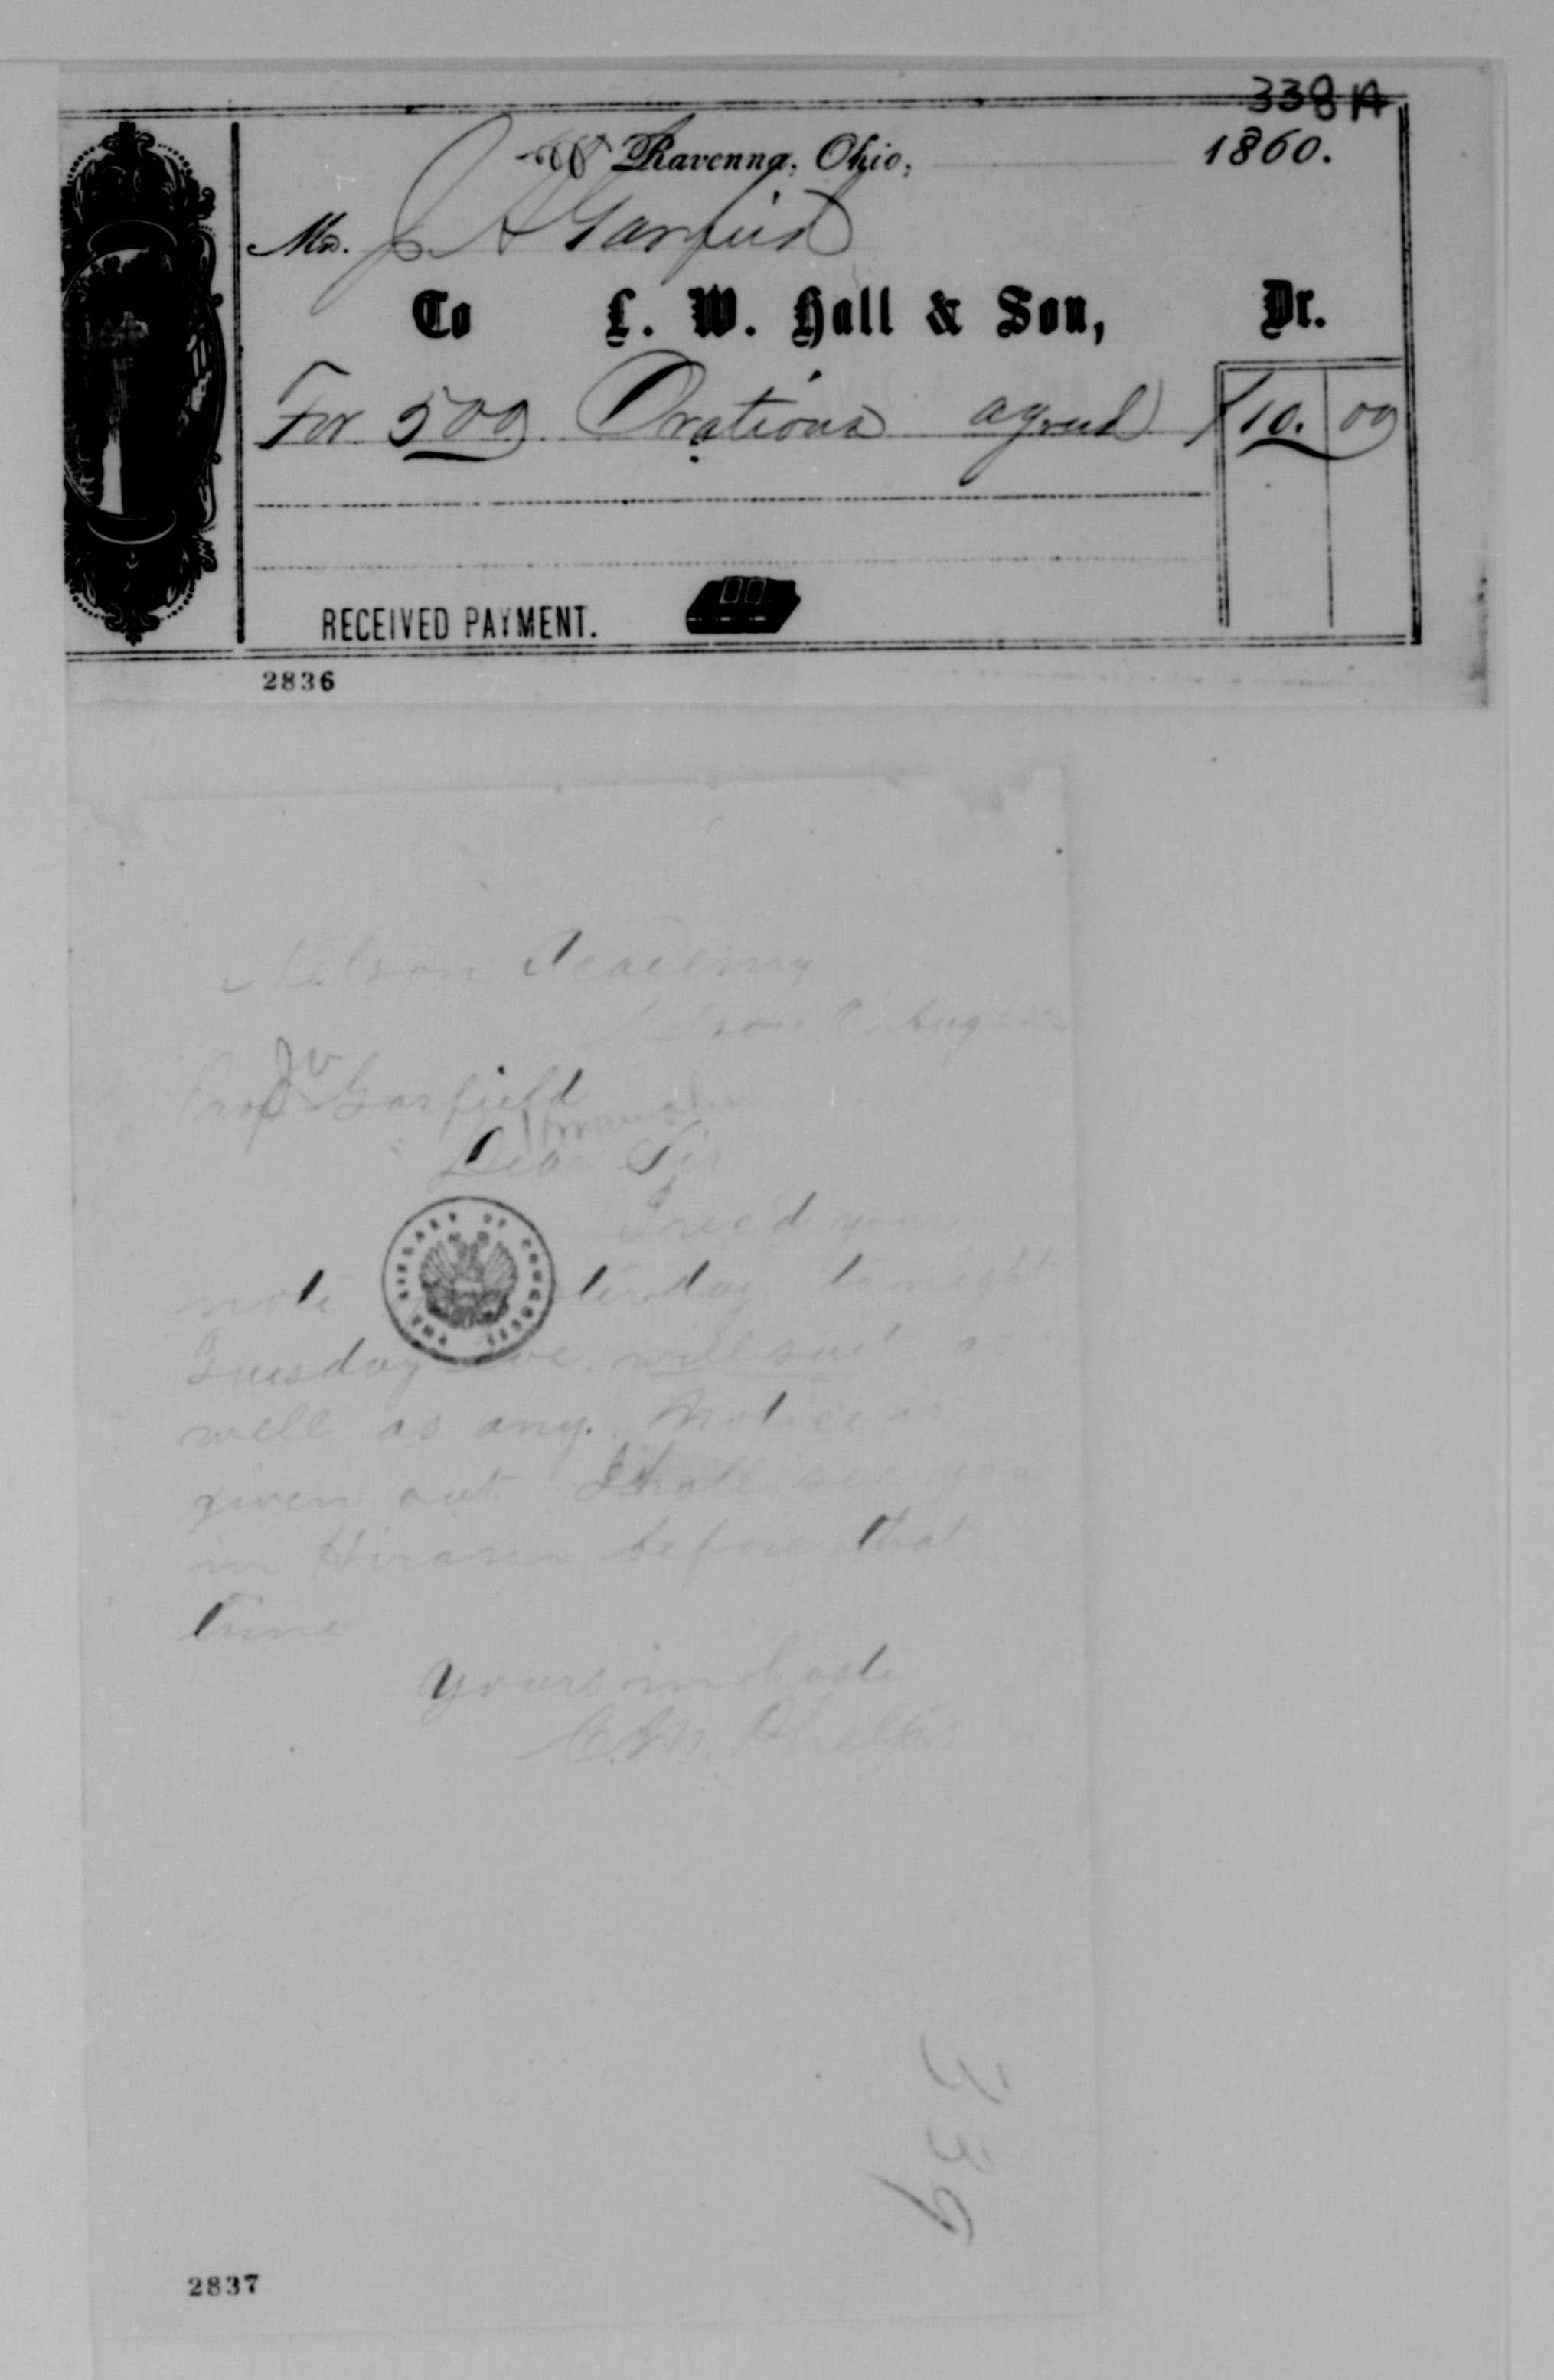 338 A
Ravenna, Ohio, 1860.
Mr. J A Garfield
To L. W. Hall & Son, Dr.
For 500 Orations agreed $10.00
RECEIVED PAYMENT.
2836
Nelson Academy
Nelson O. Aug
Prof Garfield
Dear Sir
I rec'd your
note tonight
Tuesday eve. will suit as
well as any. Notice is
given out I shall see you
in Hiram before that
time
Yours in haste
C. M. Phelps
THE LIBRARY OF CONGRESS
339
2837